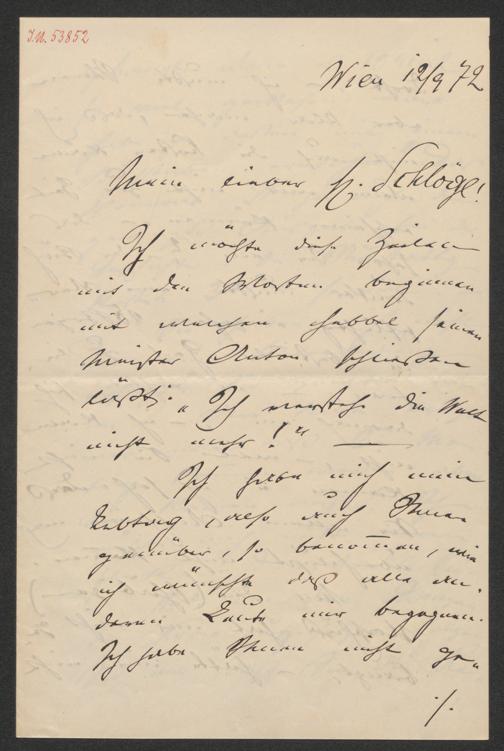 I.N. 53852
Wien 12/9 72
Mein lieber H. Schlögl!
Ich möchte diese Zeilen
mit den Worten beginnen
mit welchen Hebbel seinen
Meister Anton schließen
läßt: „Ich verstehe die Welt
nicht mehr!“ —
Ich habe mich mein
Lebtag, also auch Ihnen
genüber, so benom̅en, wie
ich wünschte daß alle an-
deren Leute mir begegnen.
Ich habe Ihnen nicht ge-
./.